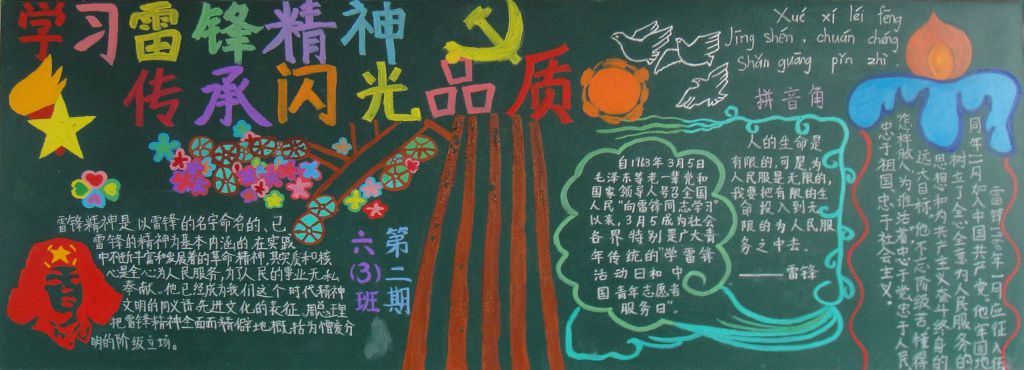 学习雷锋精神
传承闪光品质
Xué xí léi fēng
Jīng shén, chuán chéng
Shǎn guāng pǐn zhì.
拼音角
雷锋精神是以雷锋的名字命名的、已
雷锋的精神为基本内涵的、在实践
中不断丰富和发展着的革命精神,其实质和核
心是全心为人民服务,为了人民的事业无私
奉献。他已经成为我们这个时代精神
文明的同义语、先进文化的表征。周总理
把雷锋精神全面而精辟地概括为憎爱分
明的阶级立场。
第二期
六(3)班
自1963年3月5日
毛泽东等老一辈党和
国家领导人号召全国
人民“向雷锋同志学习”
以来,3月5成为社会
各界特别是广大青
年传统的“学雷锋
活动日和中
国青年志愿者
服务日”。
人的生命是
有限的,可是,为
人民服是无限的,
我要把有限的生
命投入到无
限的为人民服
务之中去。
——雷锋
雷锋1960年1月应征入伍
同年11月加入中国共产党。他牢固地
树立了全心全意为人民服务的
思想和为共产主义奋斗终身的
远大目标。他不忘阶级苦,懂得
怎样做人,为谁活着,忠于党忠于人民
忠于祖国,忠于社会主义。